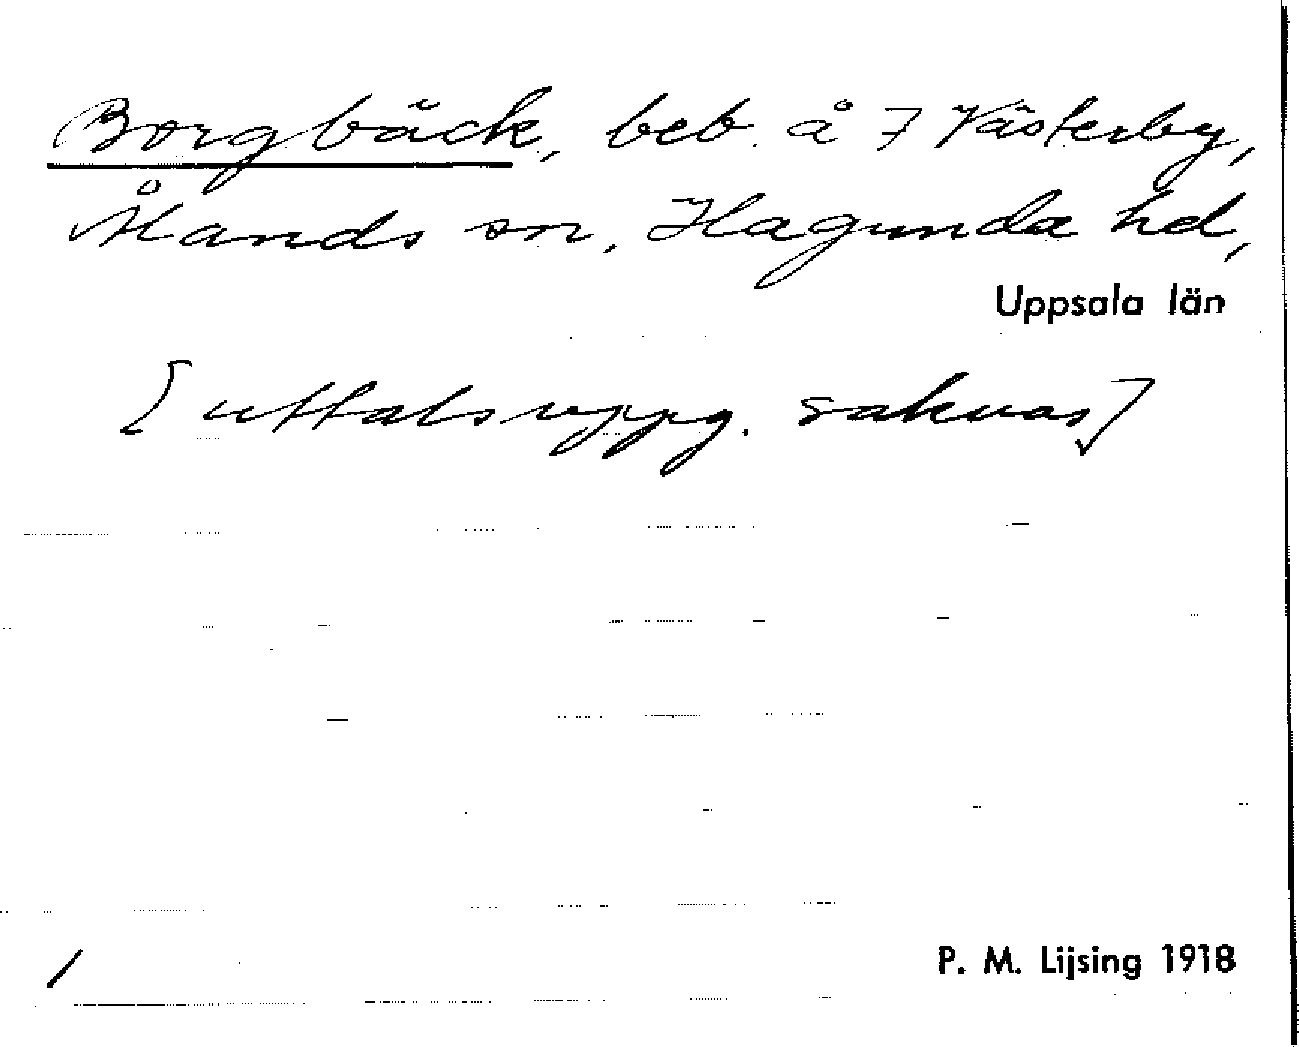 Borgbäck, beb. å 7 Västerby,
Ålands sn, Hagunda hd,
Uppsala län
[uttalsuppg. saknas]
/
P. M. Lijsing 1918